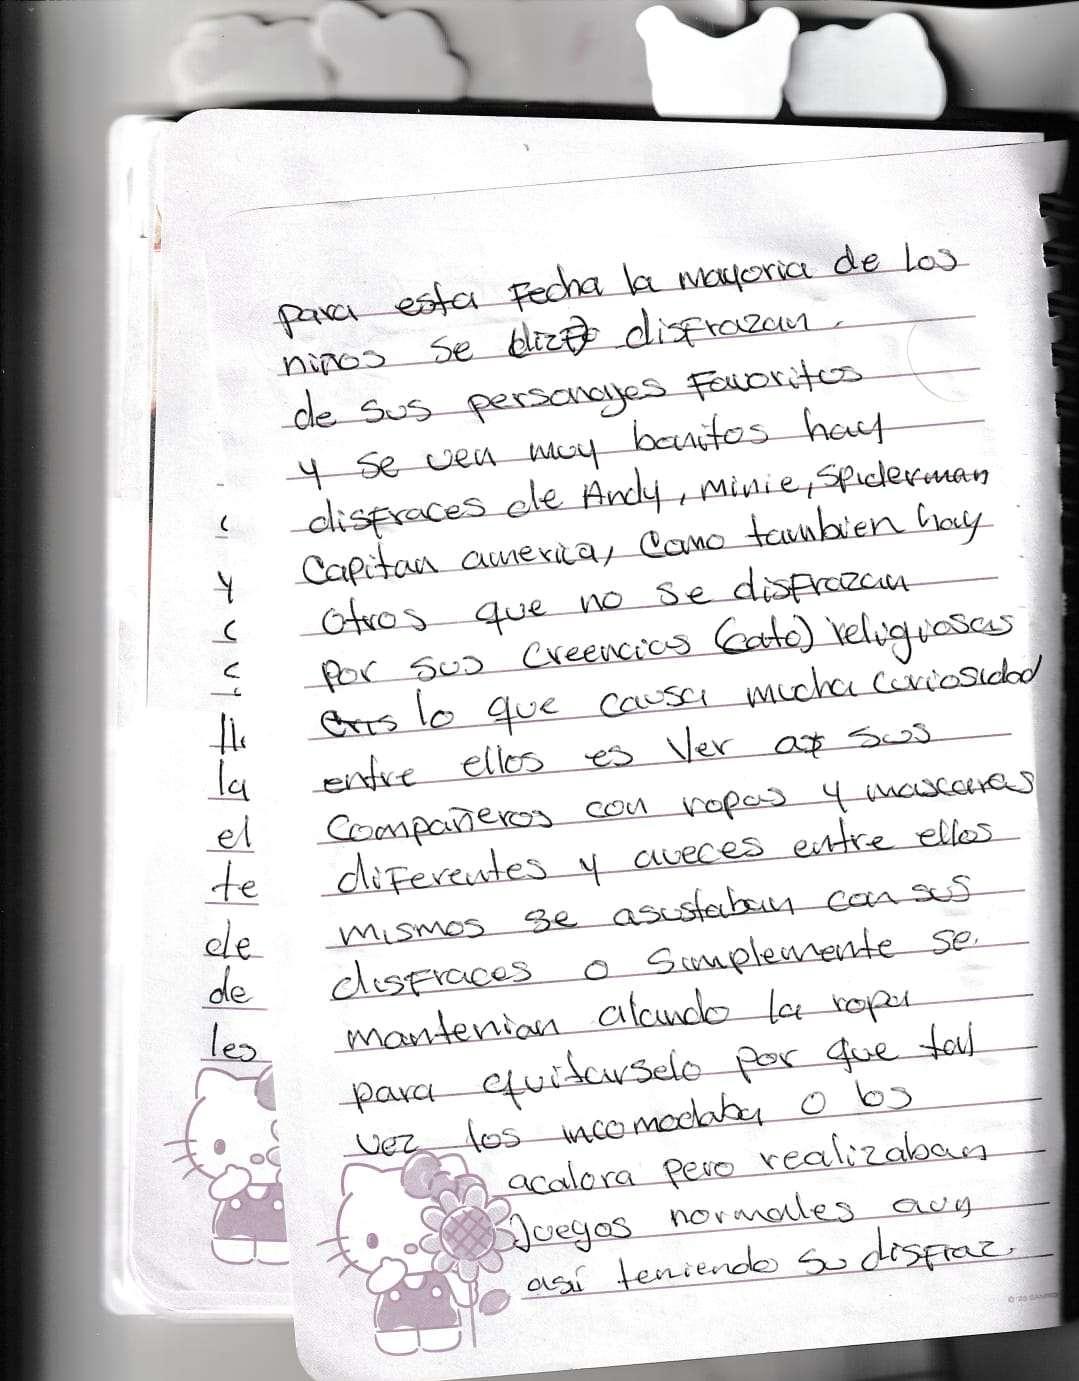 para esta Fecha la mayoria de los
niños se disfrazan.
de sus personajes Favoritos
y se ven muy bonitos hay
disfraces de Andy, minie, spiderman
Capitan america, Como tambien hay
otros que no se disfrazan
por sus creencias (cato) religiosas
lo que causa mucha curiosidad
entre ellos es Ver a sus
Compañeros con ropas y mascaras
diferentes y aveces entre ellos
mismos se asustaban con sus
disfraces o simplemente se.
mantenian alando la ropa
para quitarselo por que tal
vez los incomodaba o los
acalora pero realizaban
Juegos normales aun
así teniendo su disfraz.
y
la
el
te
de
de
les